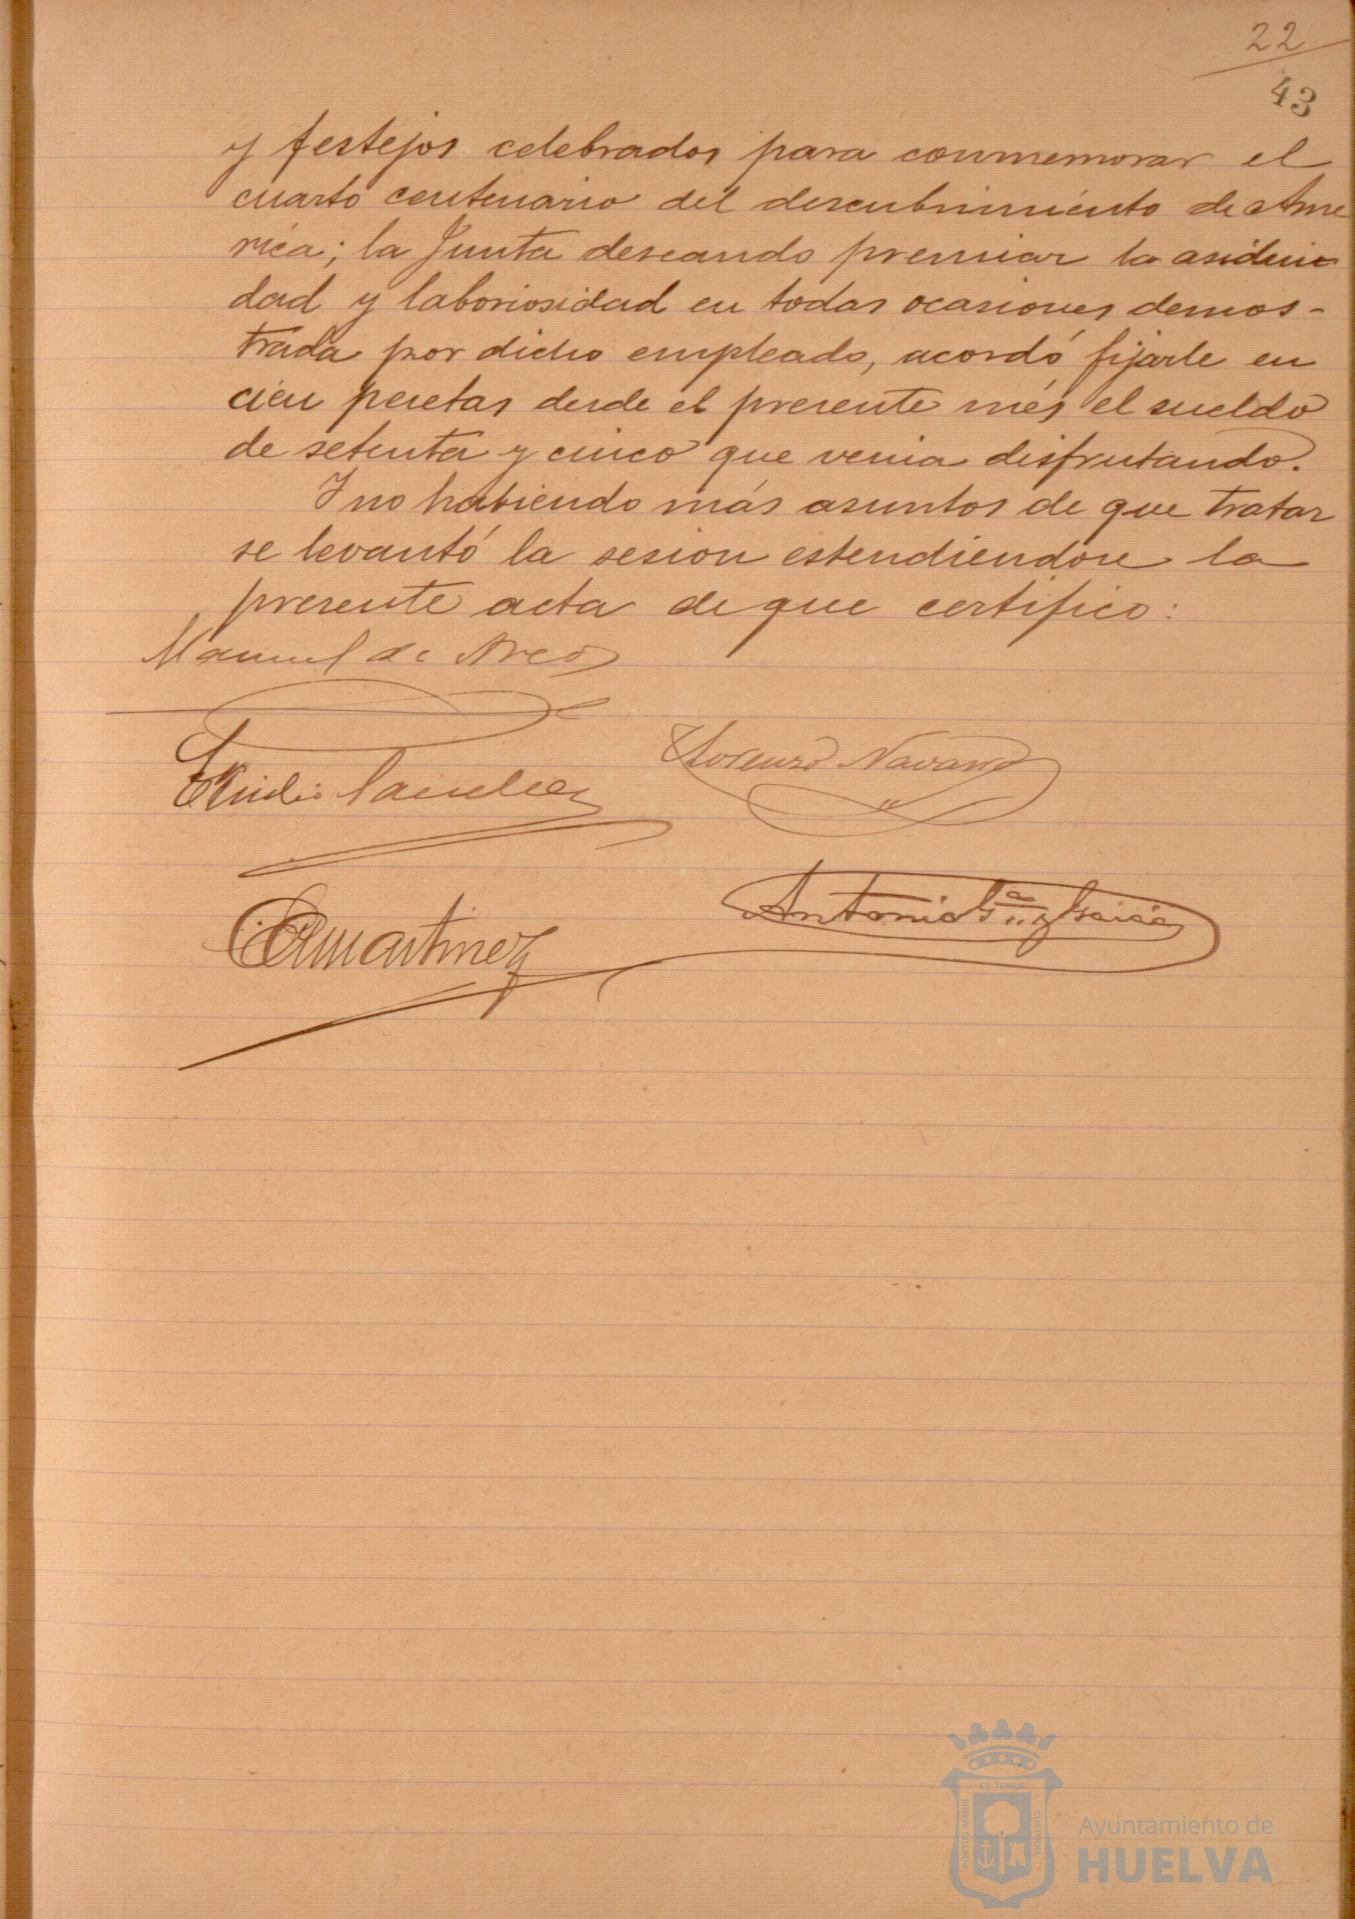 22
43
y festejos celebrados para conmemorar el
cuarto centenario del descubrimiento de Ame
rica; la Junta deseando premiar la asidui
dad y laboriosidad en todas ocasiones demos-
trada por dicho empleado, acordó fijarle en
cien pesetas desde el presente més el sueldo
de setenta y cinco que venia disfrutando.
Y no habiendo más asuntos de que tratar
se levantó la sesion estendiendose la
presente acta de que certifico:
Manuel de
Emilio
Lorenzo Navarro
Martinez
Antonio Gª y García
ET TERRAE
PORTUS MARIS
CUSTODIA
Ayuntamiento de
HUELVA